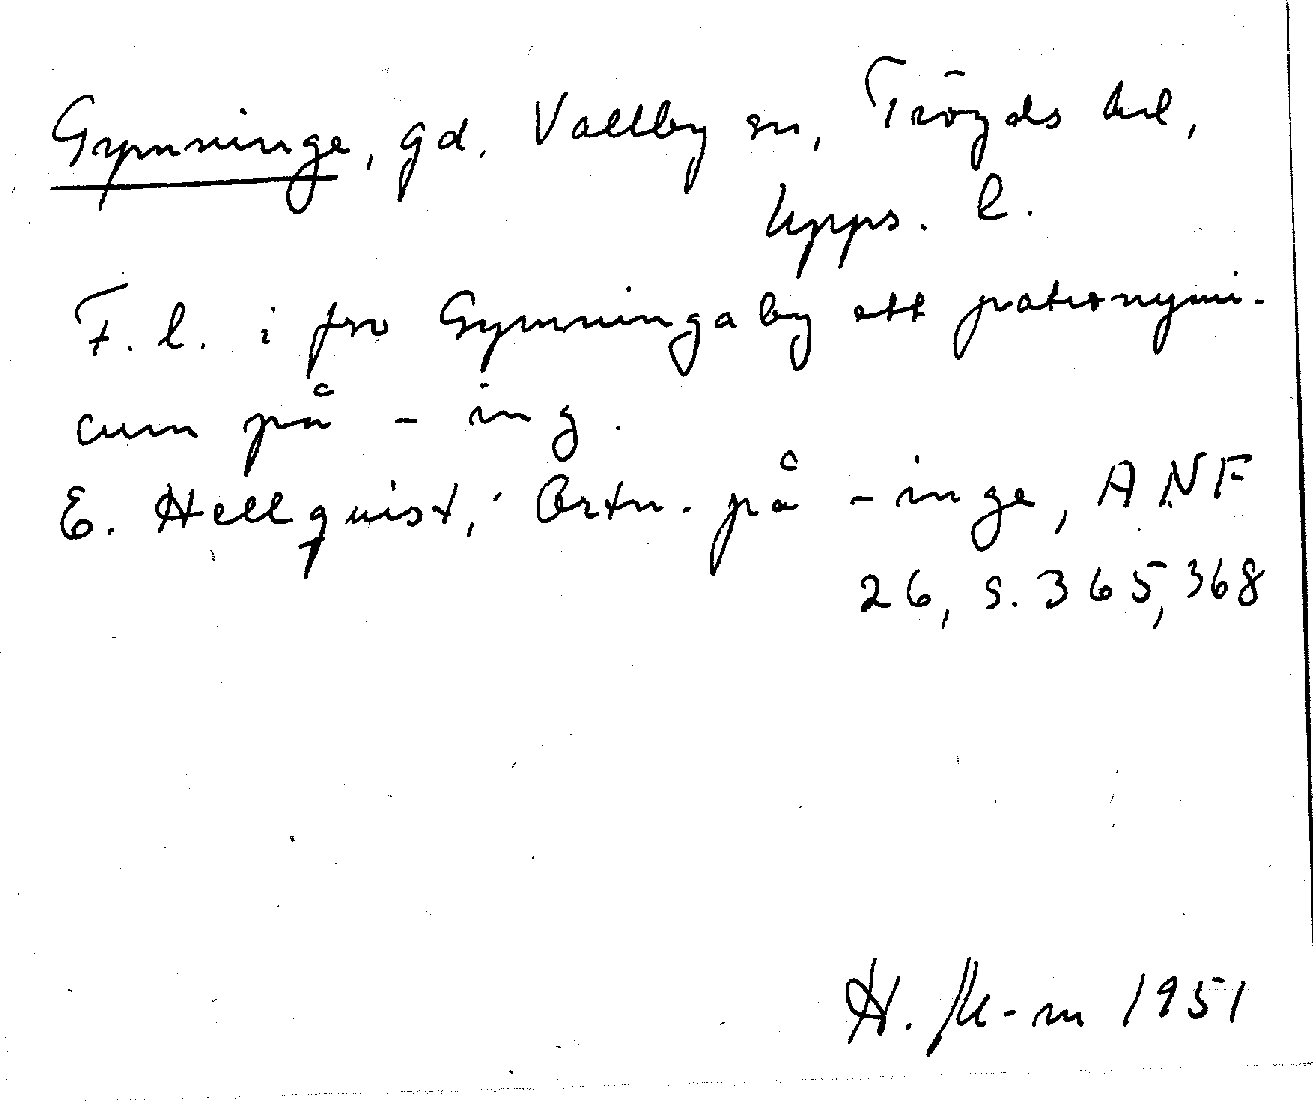 Gymninge, gd. Vallby sn, Trögds hd,
Upps. l.
F. l. i fno Gymningaby ett patronymi-
cum på -ing.
E. Hellquist, Ortn. på -inge, ANF
26, s. 365, 368
H. M-m 1951